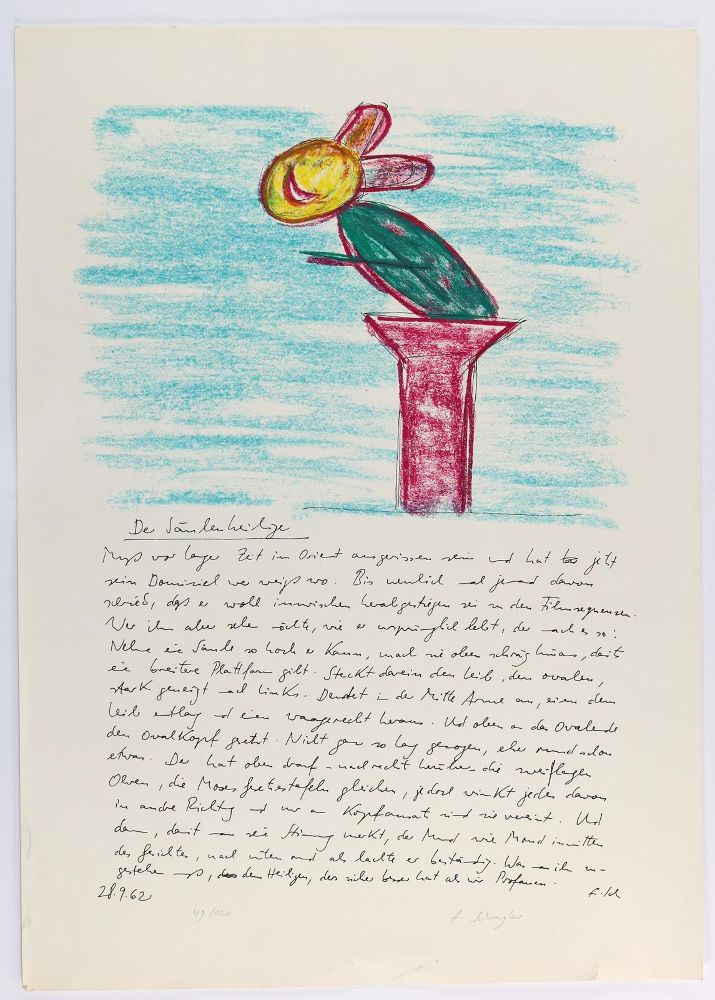 Der Säulenheilige
Muß vor langer Zeit im Orient ausgerissen sein und hat jetzt
sein Domiziel wer weiß wo. Bis neulich mal jemand davon
schrieb, daß er wohl inzwischen herabgestiegen sei zu den Filmsequenzen.
Wer ihn aber sehen möchte, wie er ursprünglich lebt, der mach es so:
Nehme eine Säule so hoch er kann, mach sie oben schräg hinaus, damit
eine breitere Plattform gibt. Steckt darein den Leib, den ovalen,
stark geneigt nach links. Deutet in der Mitte Arme an, einen dem
Leib entlang und einen waagerecht heraus. Und oben an das Ovalende
den Ovalkopf gesetzt. Nicht gar so lang gezogen, eher rund schon
etwas. Der hat oben drauf - nach rechts herüber - die zwei langen
Ohren, die Moses Gesetzestafeln gleichen, jedoch winkt jedes davon
in andre Richtung und nur am Kopfansatz sind sie vereint. Und
dann, damit man seine Stimmung merkt, der Mund wie Mond inmitten
des Gesichtes, nach unten rund als lachte er beständig. Was man ihm zu-
gestehen muß, dem Heiligen, der sicher besser hat als wir Profanen.
28.9.62
49/120